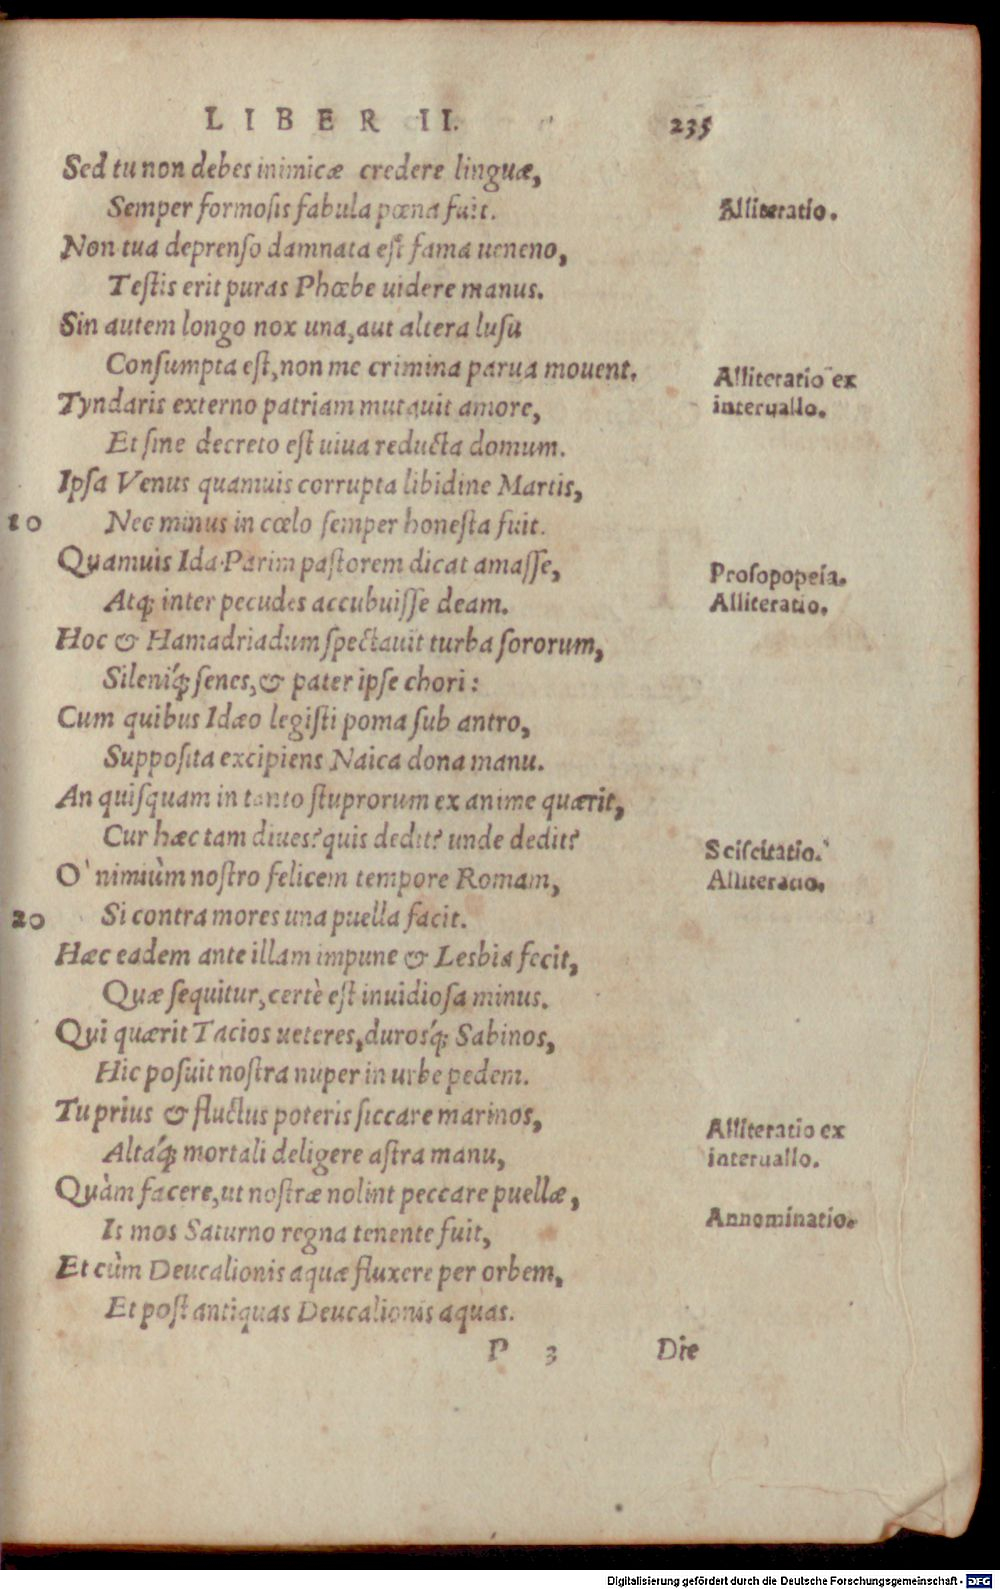 LIBER II. 235
Sed tu non debes inimicæ credere linguæ,
Semper formosis fabula pœna fuit.
Alliteratio.
Non tua deprenso damnata est fama ueneno,
Testis erit puras Phœbe uidere manus.
Sin autem longo nox una, aut altera lusu
Consumpta est, non me crimina parua mouent.
Alliteratio ex
Tyndaris externo patriam mutauit amore,
interuallo.
Et sine decreto est uiua reducta domum.
Ipsa Venus quamuis corrupta libidine Martis,
10 Nec minus in cœlo semper honesta fuit.
Quamuis Ida Parim pastorem dicat amasse,
Prosopopeia.
Atq; inter pecudes accubuisse deam.
Alliteratio.
Hoc & Hamadriadum spectauit turba sororum,
Sileniq́; senes, & pater ipse chori:
Cum quibus Idæo legisti poma sub antro,
Supposita excipiens Naica dona manu.
An quisquam in tanto stuprorum ex anime quærit,
Cur hæc tam diues? quis dedit? unde dedit?
Sciscitatio.
O' nimiùm nostro felicem tempore Romam,
Alliteratio.
20 Si contra mores una puella facit.
Hæc eadem ante illam impune & Lesbia fecit,
Quæ sequitur, certè est inuidiosa minus.
Qui quærit Tacios ueteres, durosq́; Sabinos,
Hic posuit nostra nuper in urbe pedem.
Tu prius & fluctus poteris siccare marinos,
Alliteratio ex
Altaq́; mortali deligere astra manu,
interuallo.
Quàm facere, ut nostræ nolint peccare puellæ,
Annominatio.
Is mos Saturno regna tenente fuit,
Et cùm Deucalionis aquæ fluxere per orbem,
Et post antiquas Deucalionis aquas.
P 3 Die
Digitalisierung gefördert durch die Deutsche Forschungsgemeinschaft - DFG